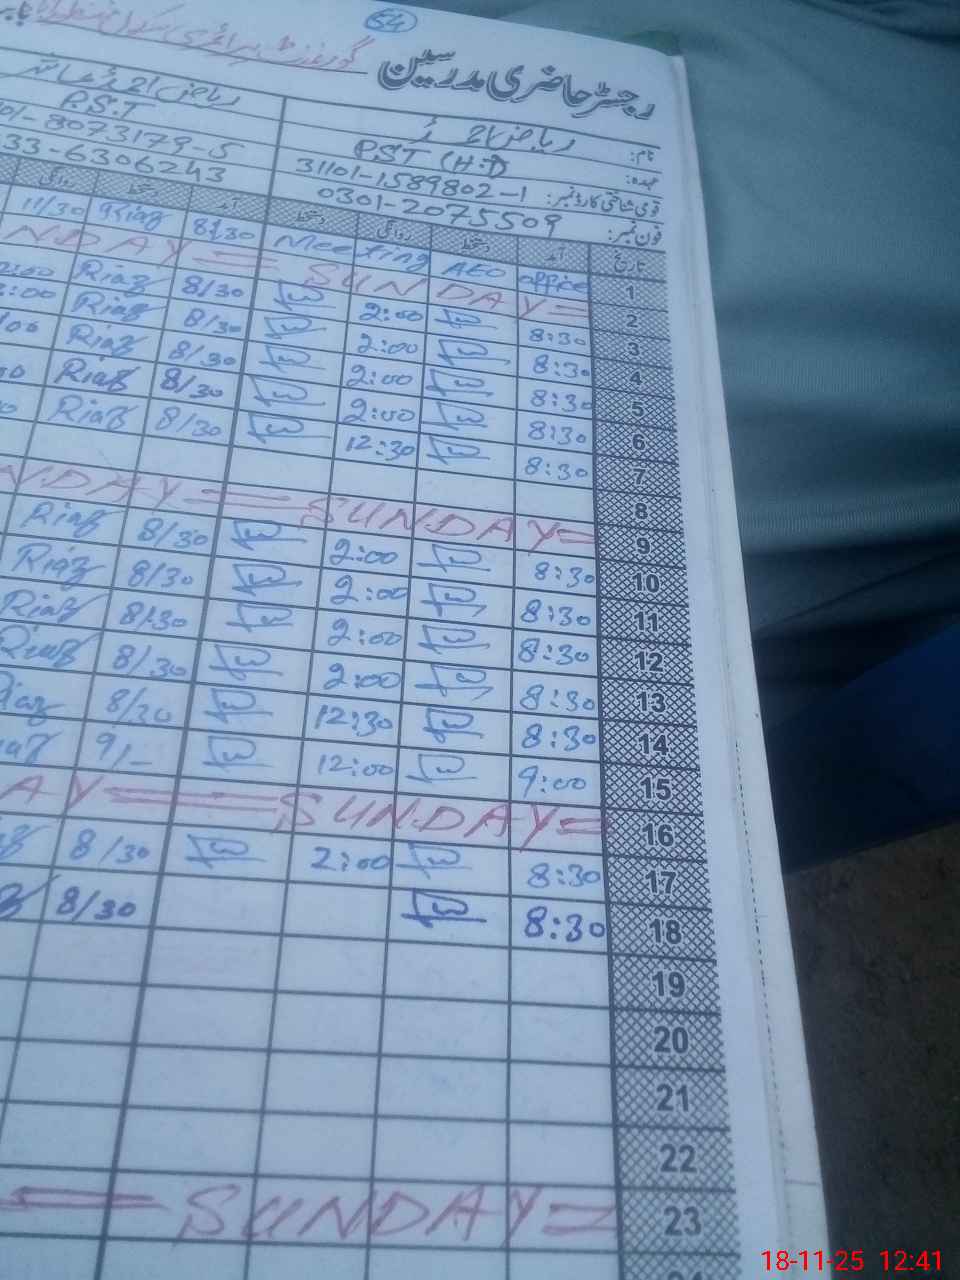 54
رجسٹر حاضری مدرسین گورنمنٹ پرائمری سکول
نام: ریاض احمد ریاض احمد
عہدہ: PST (H.T) P.S.T
قومی شناختی کارڈ نمبر: 31101-1589802-1 01-8073179-5
فون نمبر: 0301-2075509 33-6306243
تاریخ آمد دستخط روانگی دستخط آمد دستخط روانگی
1 office AEO Meeting 8/30 Riaz 11/30
2 SUNDAY = NDAY =
3 8:30 2:00 8/30 Riaz 2:00
4 8:30 2:00 8/30 Riaz 2:00
5 8:30 2:00 8/30 Riaz
6 8:30 2:00 8/30 Riaz
7 8:30 12:30 8/30 Riaz
8
9 SUNDAY = NDAY =
10 8:30 2:00 8/30 Riaz
11 8:30 2:00 8/30 Riaz
12 8:30 2:00 8/30 Riaz
13 8:30 2:00 8/30 Riaz
14 8:30 12:30 8/30 Riaz
15 9:00 12:00 9/-
16 SUNDAY = AY =
17 8:30 2:00 8/30
18 8:30 8/30
19
20
21
22
23 SUNDAY =
18-11-25 12:41